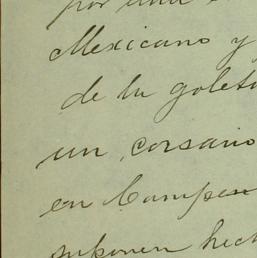 por una
Mexicano y
de la goleta
un corsario
en Campe
suponen hech